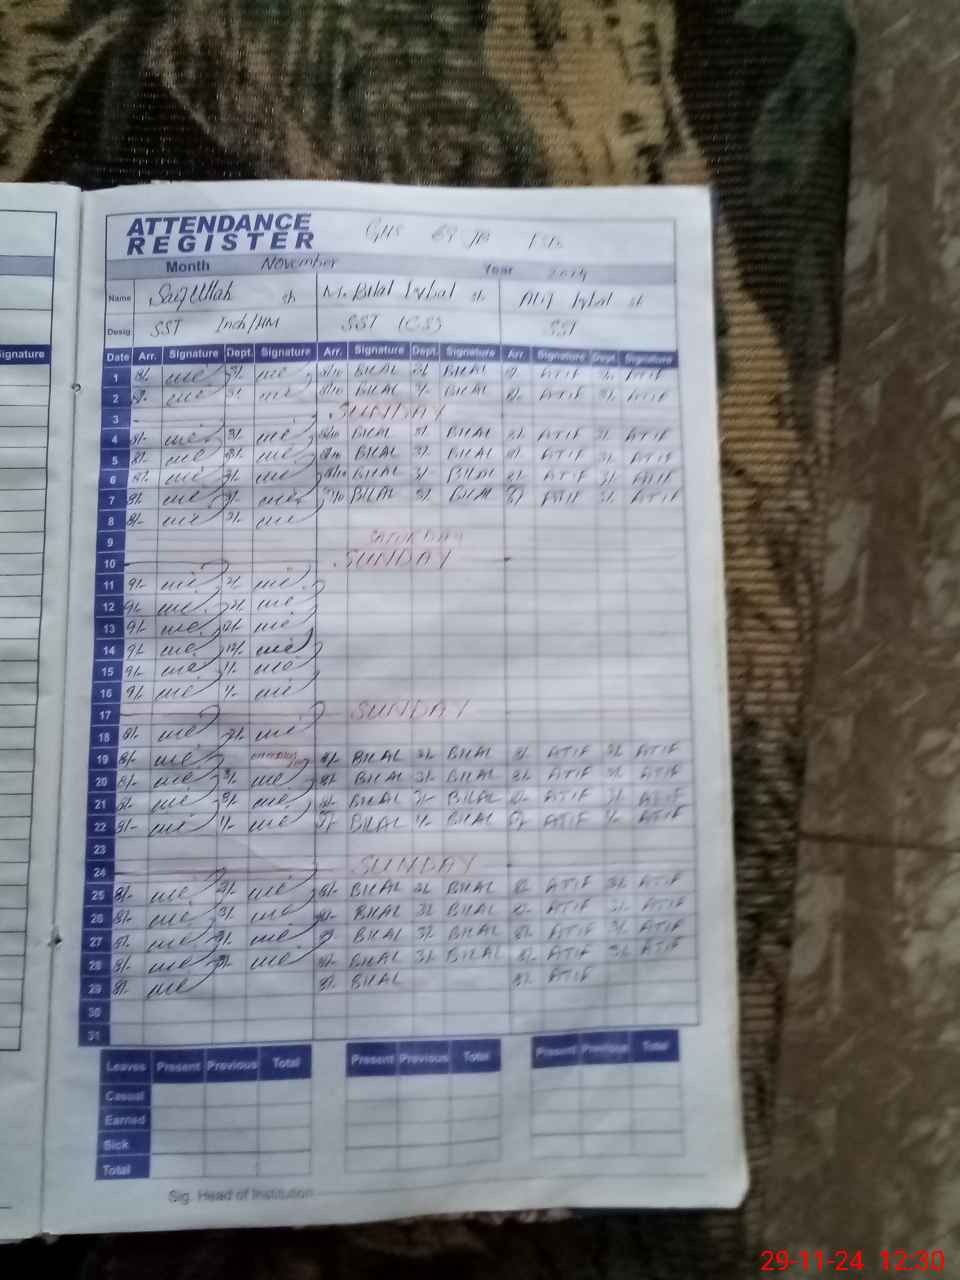 ATTENDANCE
REGISTER
GHS 69 JB
Month November Year 2024
Name Saif Ullah sb M. Bilal Iqbal sb Atif Iqbal sb
Desig. SST Inch/HM SST (CS) SST
Signature
Date Arr. Signature Dept. Signature Arr. Signature Dept. Signature Arr. Signature Dept. Signature
1 8/- 3/- BILAL 3/- BILAL 8/- ATIF 3/- ATIF
2 8/- 3/- BILAL BILAL 8/- ATIF 3/- ATIF
3 SUNDAY
4 8/- 3/- BILAL 3/- BILAL 8/- ATIF 3/- ATIF
5 8/- 3/- BILAL 3/- BILAL 8/- ATIF 3/- ATIF
6 8/- 3/- BILAL 3/- BILAL 8/- ATIF 3/- ATIF
7 8/- 3/- BILAL 3/- BILAL 8/- ATIF 3/- ATIF
8 8/- 3/-
9 SATURDAY
10 SUNDAY
11 9/- 2/-
12 9/- 2/-
13 9/- 12/-
14 9/- 12/-
15 9/- 1/-
16 9/- 1/-
17 SUNDAY
18 8/- 2/-
19 8/- 8/- BILAL 3/- BILAL 8/- ATIF 3/- ATIF
20 8/- 3/- 8/- BILAL 3/- BILAL 8/- ATIF 3/- ATIF
21 8/- 3/- 8/- BILAL 3/- BILAL 8/- ATIF 3/- ATIF
22 8/- 1/- 8/- BILAL 1/- BILAL 8/- ATIF 1/- ATIF
23
24 SUNDAY
25 8/- 3/- 8/- BILAL 3/- BILAL 8/- ATIF 3/- ATIF
26 8/- 3/- 8/- BILAL 3/- BILAL 8/- ATIF 3/- ATIF
27 8/- 3/- 8/- BILAL 3/- BILAL 8/- ATIF 3/- ATIF
28 8/- 3/- 8/- BILAL 3/- BILAL 8/- ATIF 3/- ATIF
29 8/- 8/- BILAL 8/- ATIF
30
31
Leaves Present Previous Total Present Previous Total Present Previous Total
Casual
Earned
Sick
Total
Sig. Head of Institution
29-11-24 12:30